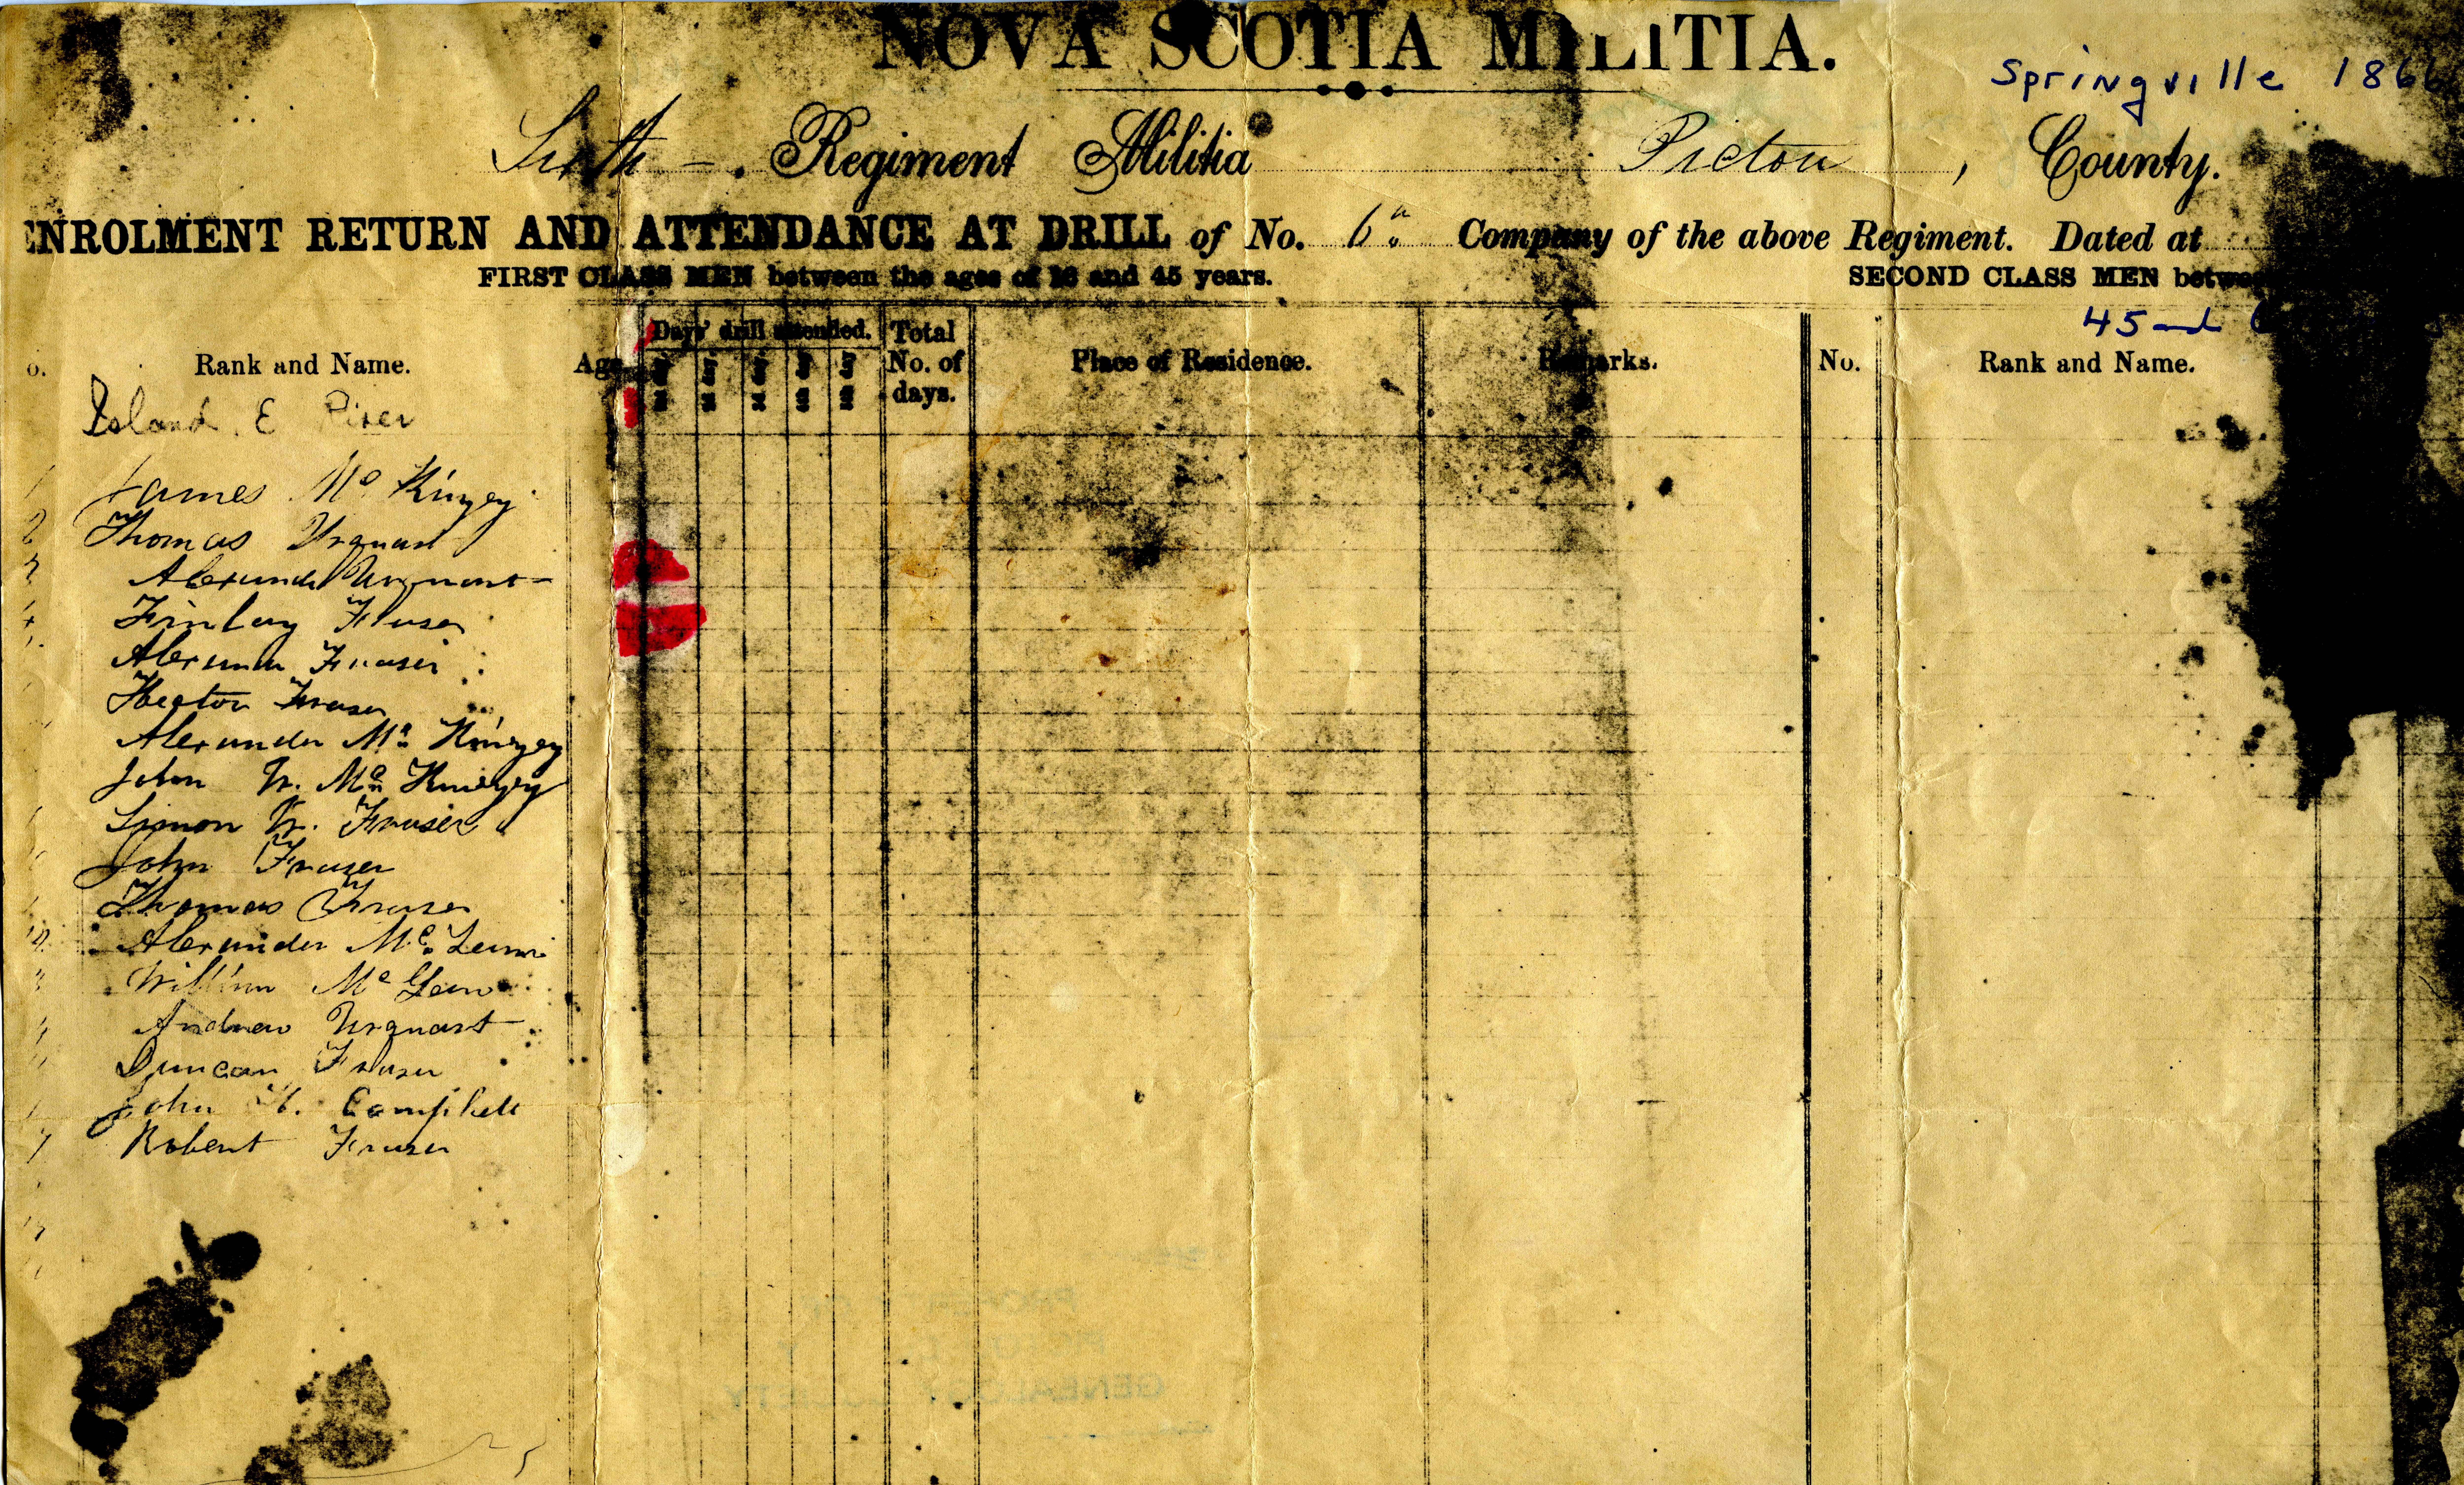 NOVA SCOTIA MILITIA.
Springville 186
Sixth Regiment Militia Pictou, County.
ENROLMENT RETURN AND ATTENDANCE AT DRILL of No. 6 Company of the above Regiment. Dated at
FIRST CLASS MEN between the ages of 16 and 45 years. SECOND CLASS MEN between
45 and 6
o. Rank and Name. Age. Days' drill attended. Total No. of days. Place of Residence. Remarks. No. Rank and Name.
Island E River
1 James Mc Kinzey
2 Thomas Urquart
3 Alexander Urquart
4 Finlay Fraser
Alexander Fraser
Hector Fraser
Alexander Mc Kinzey
John W. Mc Kinzey
Simon W. Fraser
John Fraser
Thomas Fraser
12 Alexander Mc Lean
William Mc Lean
Andrew Urquart
Duncan Fraser
John Campbell
7 Robert Fraser
GENEALOGY SOCIETY